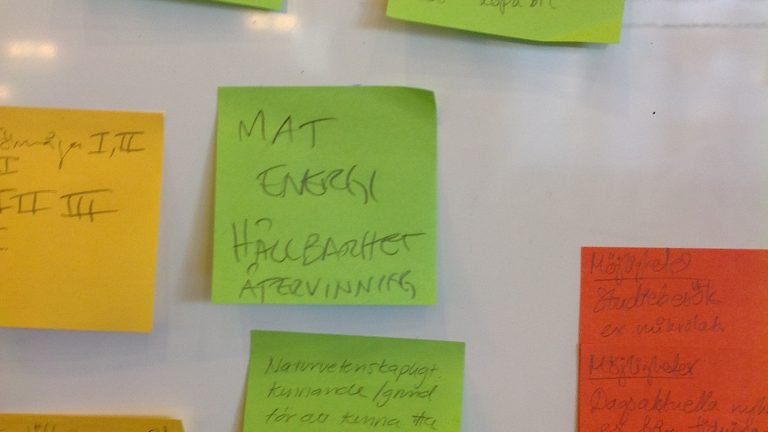 MAT
ENERGI
HÅLLBARHET
ÅTERVINNING
I, II
I
II III
Naturvetenskapligt
kunnande / grund
för att kunna
Möjligheter
Studiebesök
ex mikrolab
Möjligheter
Dagsaktuella